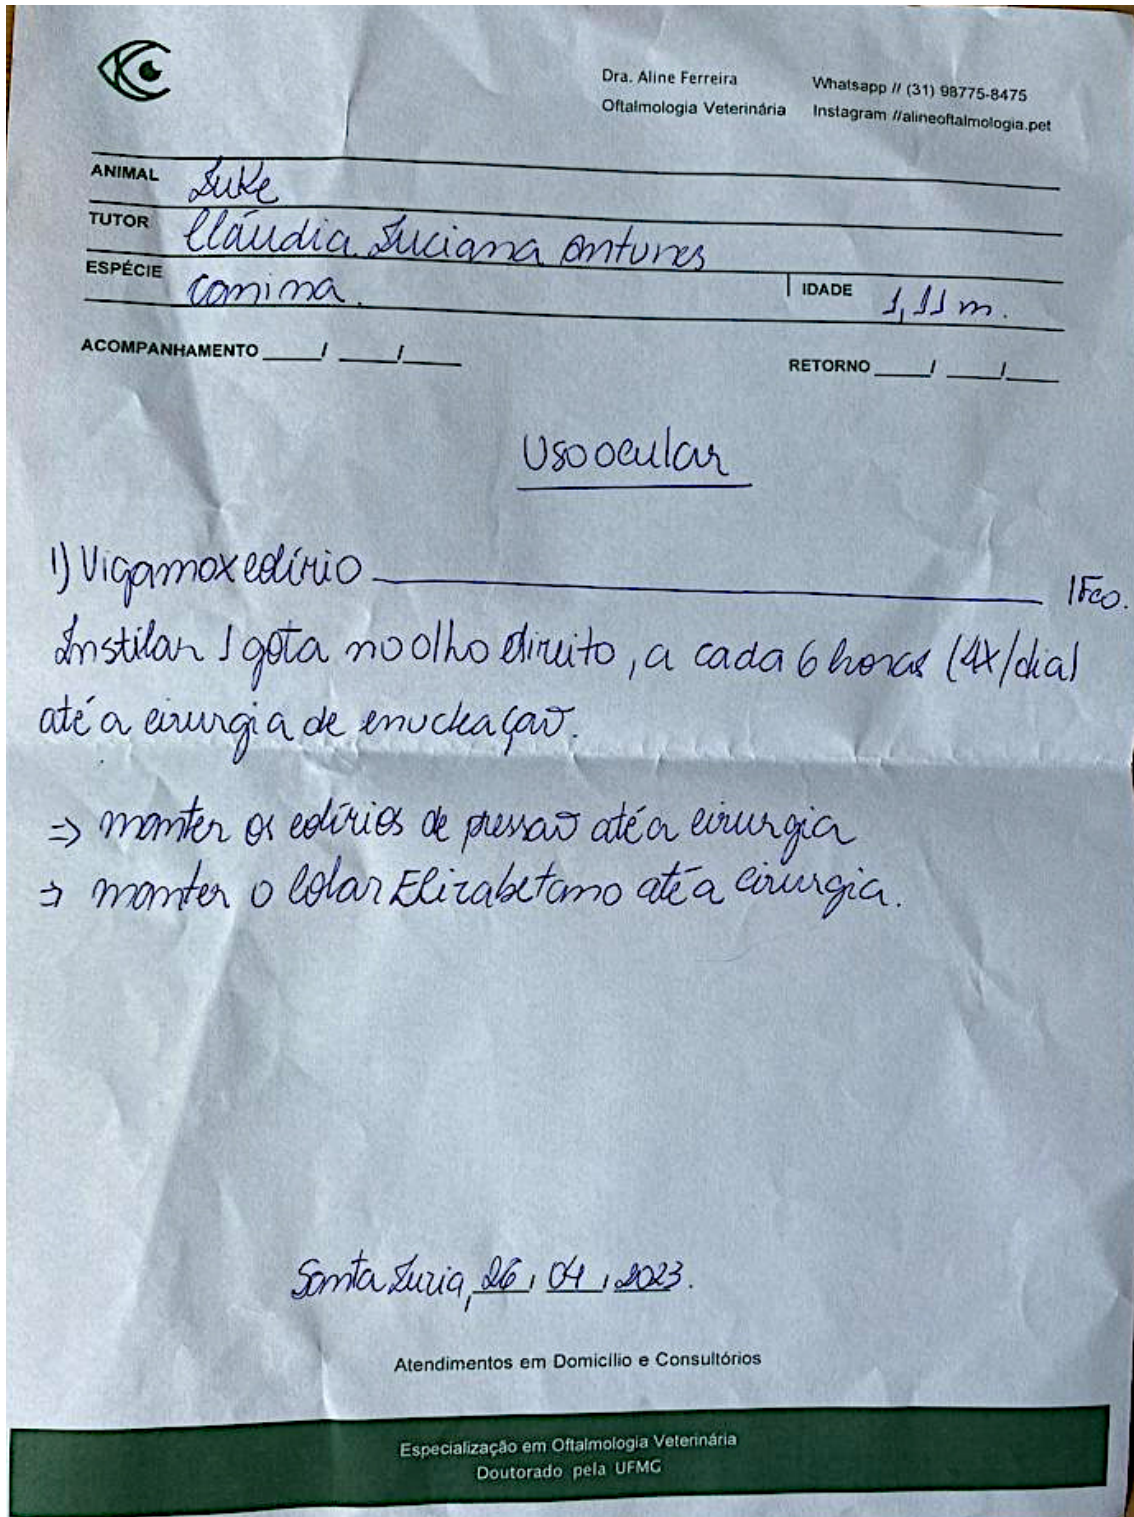 Dra. Aline Ferreira
Oftalmologia Veterinária
Whatsapp // (31) 98775-8475
Instagram //alineoftalmologia.pet
ANIMAL Luke
TUTOR Cláudia Luciana Antunes
ESPÉCIE Canina. IDADE 1,11 m.
ACOMPANHAMENTO ____/ ____/____ RETORNO ____/ ____/____
Uso ocular
1) Vigamox colírio ____ 1Fco.
Instilar 1 gota no olho direito, a cada 6 horas (4X/dia)
até a cirurgia de enucleação.
=> manter os colírios de pressão até a cirurgia
=> manter o Colar Elizabetano até a cirurgia.
Santa Luzia, 26 / 04 / 2023.
Atendimentos em Domicílio e Consultórios
Especialização em Oftalmologia Veterinária
Doutorado pela UFMG